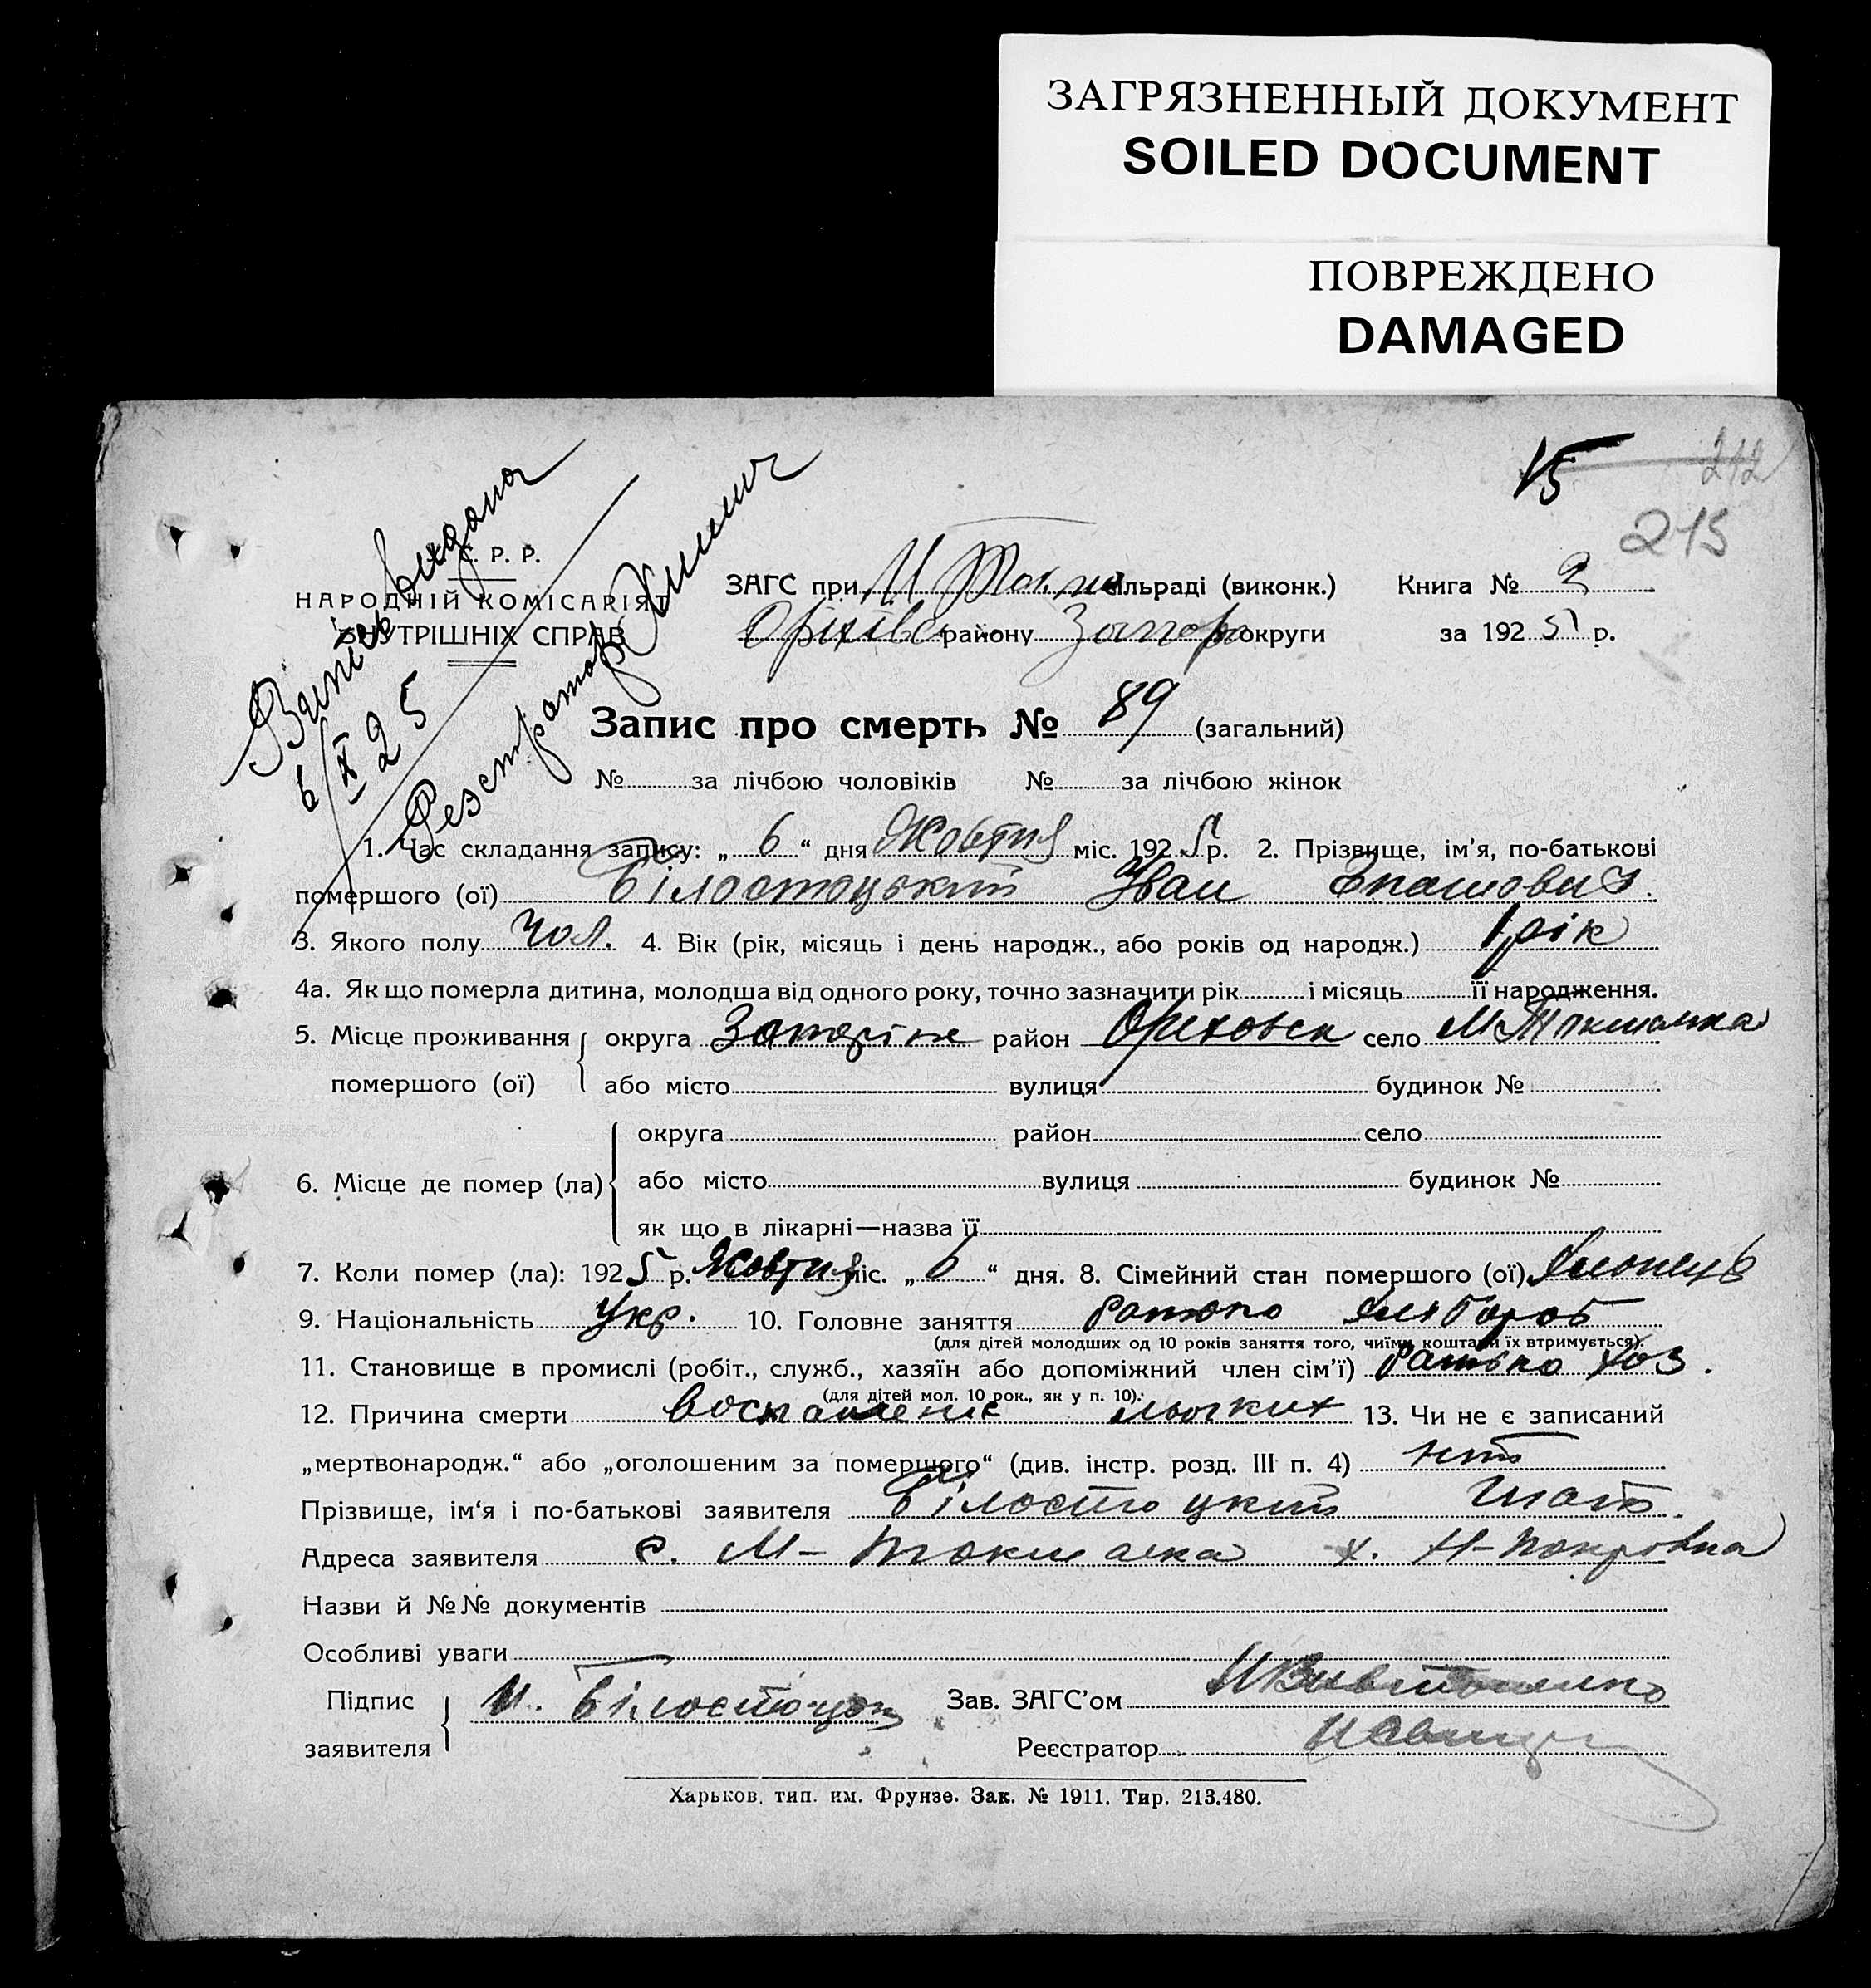 ЗАГРЯЗНЕННЫЙ ДОКУМЕНТ
SOILED DOCUMENT
ПОВРЕЖДЕНО
DAMAGED
15 212
215
Витісь видана
6/X 25
Реєстратор
Р. Р.
НАРОДНІЙ КОМІСАРІЯТ
ВНУТРІШНІХ СПРАВ
ЗАГС при М Токм сільраді (виконк.) Книга № 2
Оріхівс району Запор округи за 1925 р.
Запис про смерть № 89 (загальний)
№ за лічбою чоловіків № за лічбою жінок
1. Час складання запису: „ 6 “ дня Жовтня міс. 1925 р. 2. Прізвище, ім'я, по-батькові
помершого (ої) Білостоцький Іван Гнатович
3. Якого полу чол. 4. Вік (рік, місяць і день народж., або років од народж.) 1 рік
4а. Як що померла дитина, молодша від одного року, точно зазначити рік і місяць її народження.
5. Місце проживання округа район Ореховск село М Токмачка
помершого (ої) або місто вулиця будинок №
округа район село
6. Місце де помер (ла) або місто вулиця будинок №
як що в лікарні—назва її
7. Коли помер (ла): 1925 р. Жовтня міс. „ 6 “ дня. 8. Сімейний стан помершого (ої)
9. Національність Укр. 10. Головне заняття батько хлібороб
(для дітей молодших од 10 років заняття того, чиїми коштами їх втримується).
11. Становище в промислі (робіт., служб., хазяїн або допоміжний член сім'ї) батько хоз.
(для дітей мол. 10 рок., як у п. 10).
12. Причина смерти воспаленіє льогких 13. Чи не є записаний
„мертвонародж.“ або „оголошеним за померщого“ (див. інстр. розд. III п. 4) ні
Прізвище, ім'я і по-батькові заявителя Білостоцкий Гнат
Адреса заявителя с. М-Токмачка х. Н-Покровка
Назви й №№ документів
Особливі уваги
Підпис И. Білостоцк Зав. ЗАГС'ом
заявителя Реєстратор
Харьков. тип. им. Фрунзе. Зак. № 1911. Тир. 213.480.